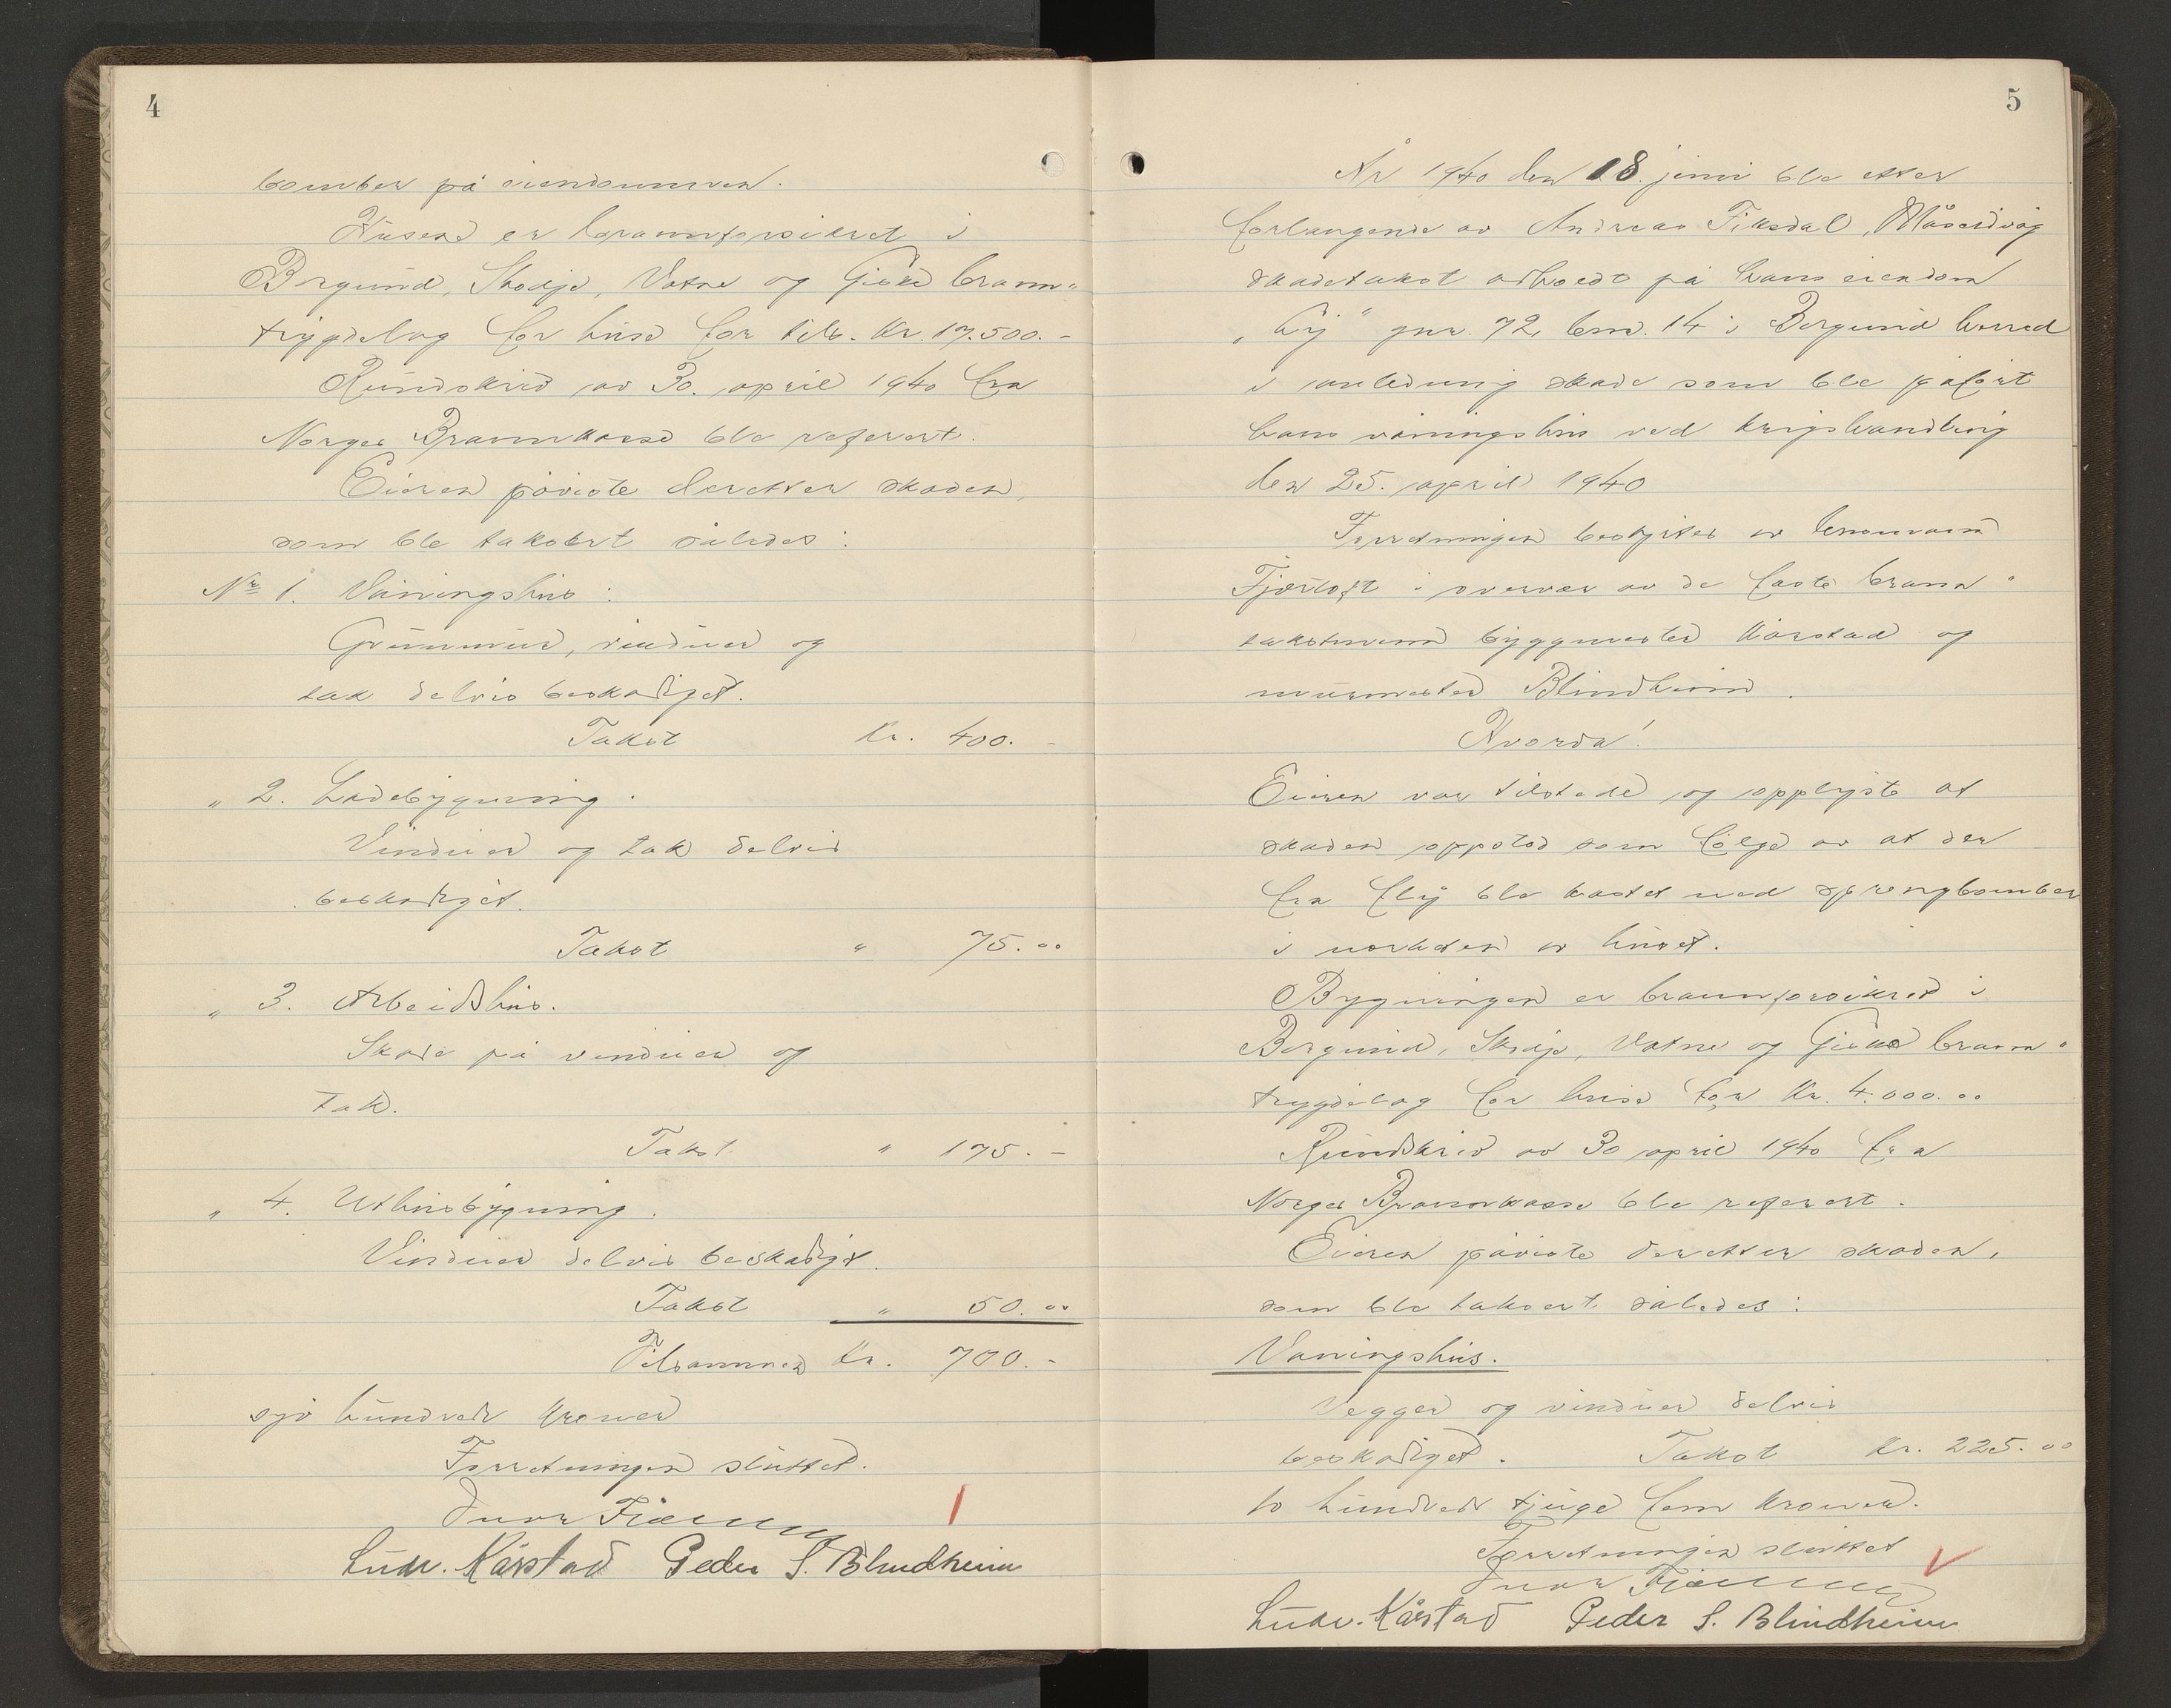 4
bomber på eiendommen.
Husene er brannforsikret i
Borgund, Skodje, Vatne og Giske brann-
trygdelag for husd for tils. kr. 17.500.-
Rundskriv av 30. april 1940 fra
Norges Brannkasse ble referert.
Eieren påviste deretter skaden,
som ble taksert således:
Nr 1. Våningshus:
Grunnmur, vinduer og
tak delvis beskadiget.
Takst Kr. 400.-
" 2. Ladebygning.
Vinduer og tak delvis
beskadiget.
Takst " 75.00
" 3. Arbeidshus.
Skade på vinduer og
tak.
Takst " 175.-
" 4. Uthusbygning.
Vinduer delvis beskadiget.
Takst " 50.00
Tilsammen Kr. 700.-
sju hundrede kroner
Forretningen sluttet.
Ludv. Kårstad Peder S. Blindheim
5
År 1940 den 18. juni ble etter
forlangende av Andreas Fiksdal, Måseidvåg
skadetakst avholdt på hans eiendom
"Ly" gnr. 72, bnr. 14 i Borgund herred
i anledning skade som ble påført
hans våningshus ved krigshandling
den 25. april 1940
Forretningen bestyrtes av lensmann
Fjørtoft i overvær av de faste brann-
takstmenn byggmester Kårstad og
murmester Blindheim.
Hvorda!
Eieren var tilstede og opplyste at
skaden oppstod som følge av at der
fra fly ble kastet ned sprengbomber
i nærheten av huset.
Bygningen er brannforsikret i
Borgund, Skodje, Vatne og Giske brann-
trygdelag for husd for Kr. 4.000.00
Rundskriv av 30 april 1940 fra
Norges Brannkasse ble referert.
Eieren påviste deretter skaden,
som ble taksert således:
Våningshus.
Vegger og vinduer delvis
beskadiget. Takst Kr. 225.00
to hundrede tjuge fem kroner.
Forretningen sluttet
Ludv. Kårstad Peder S. Blindheim